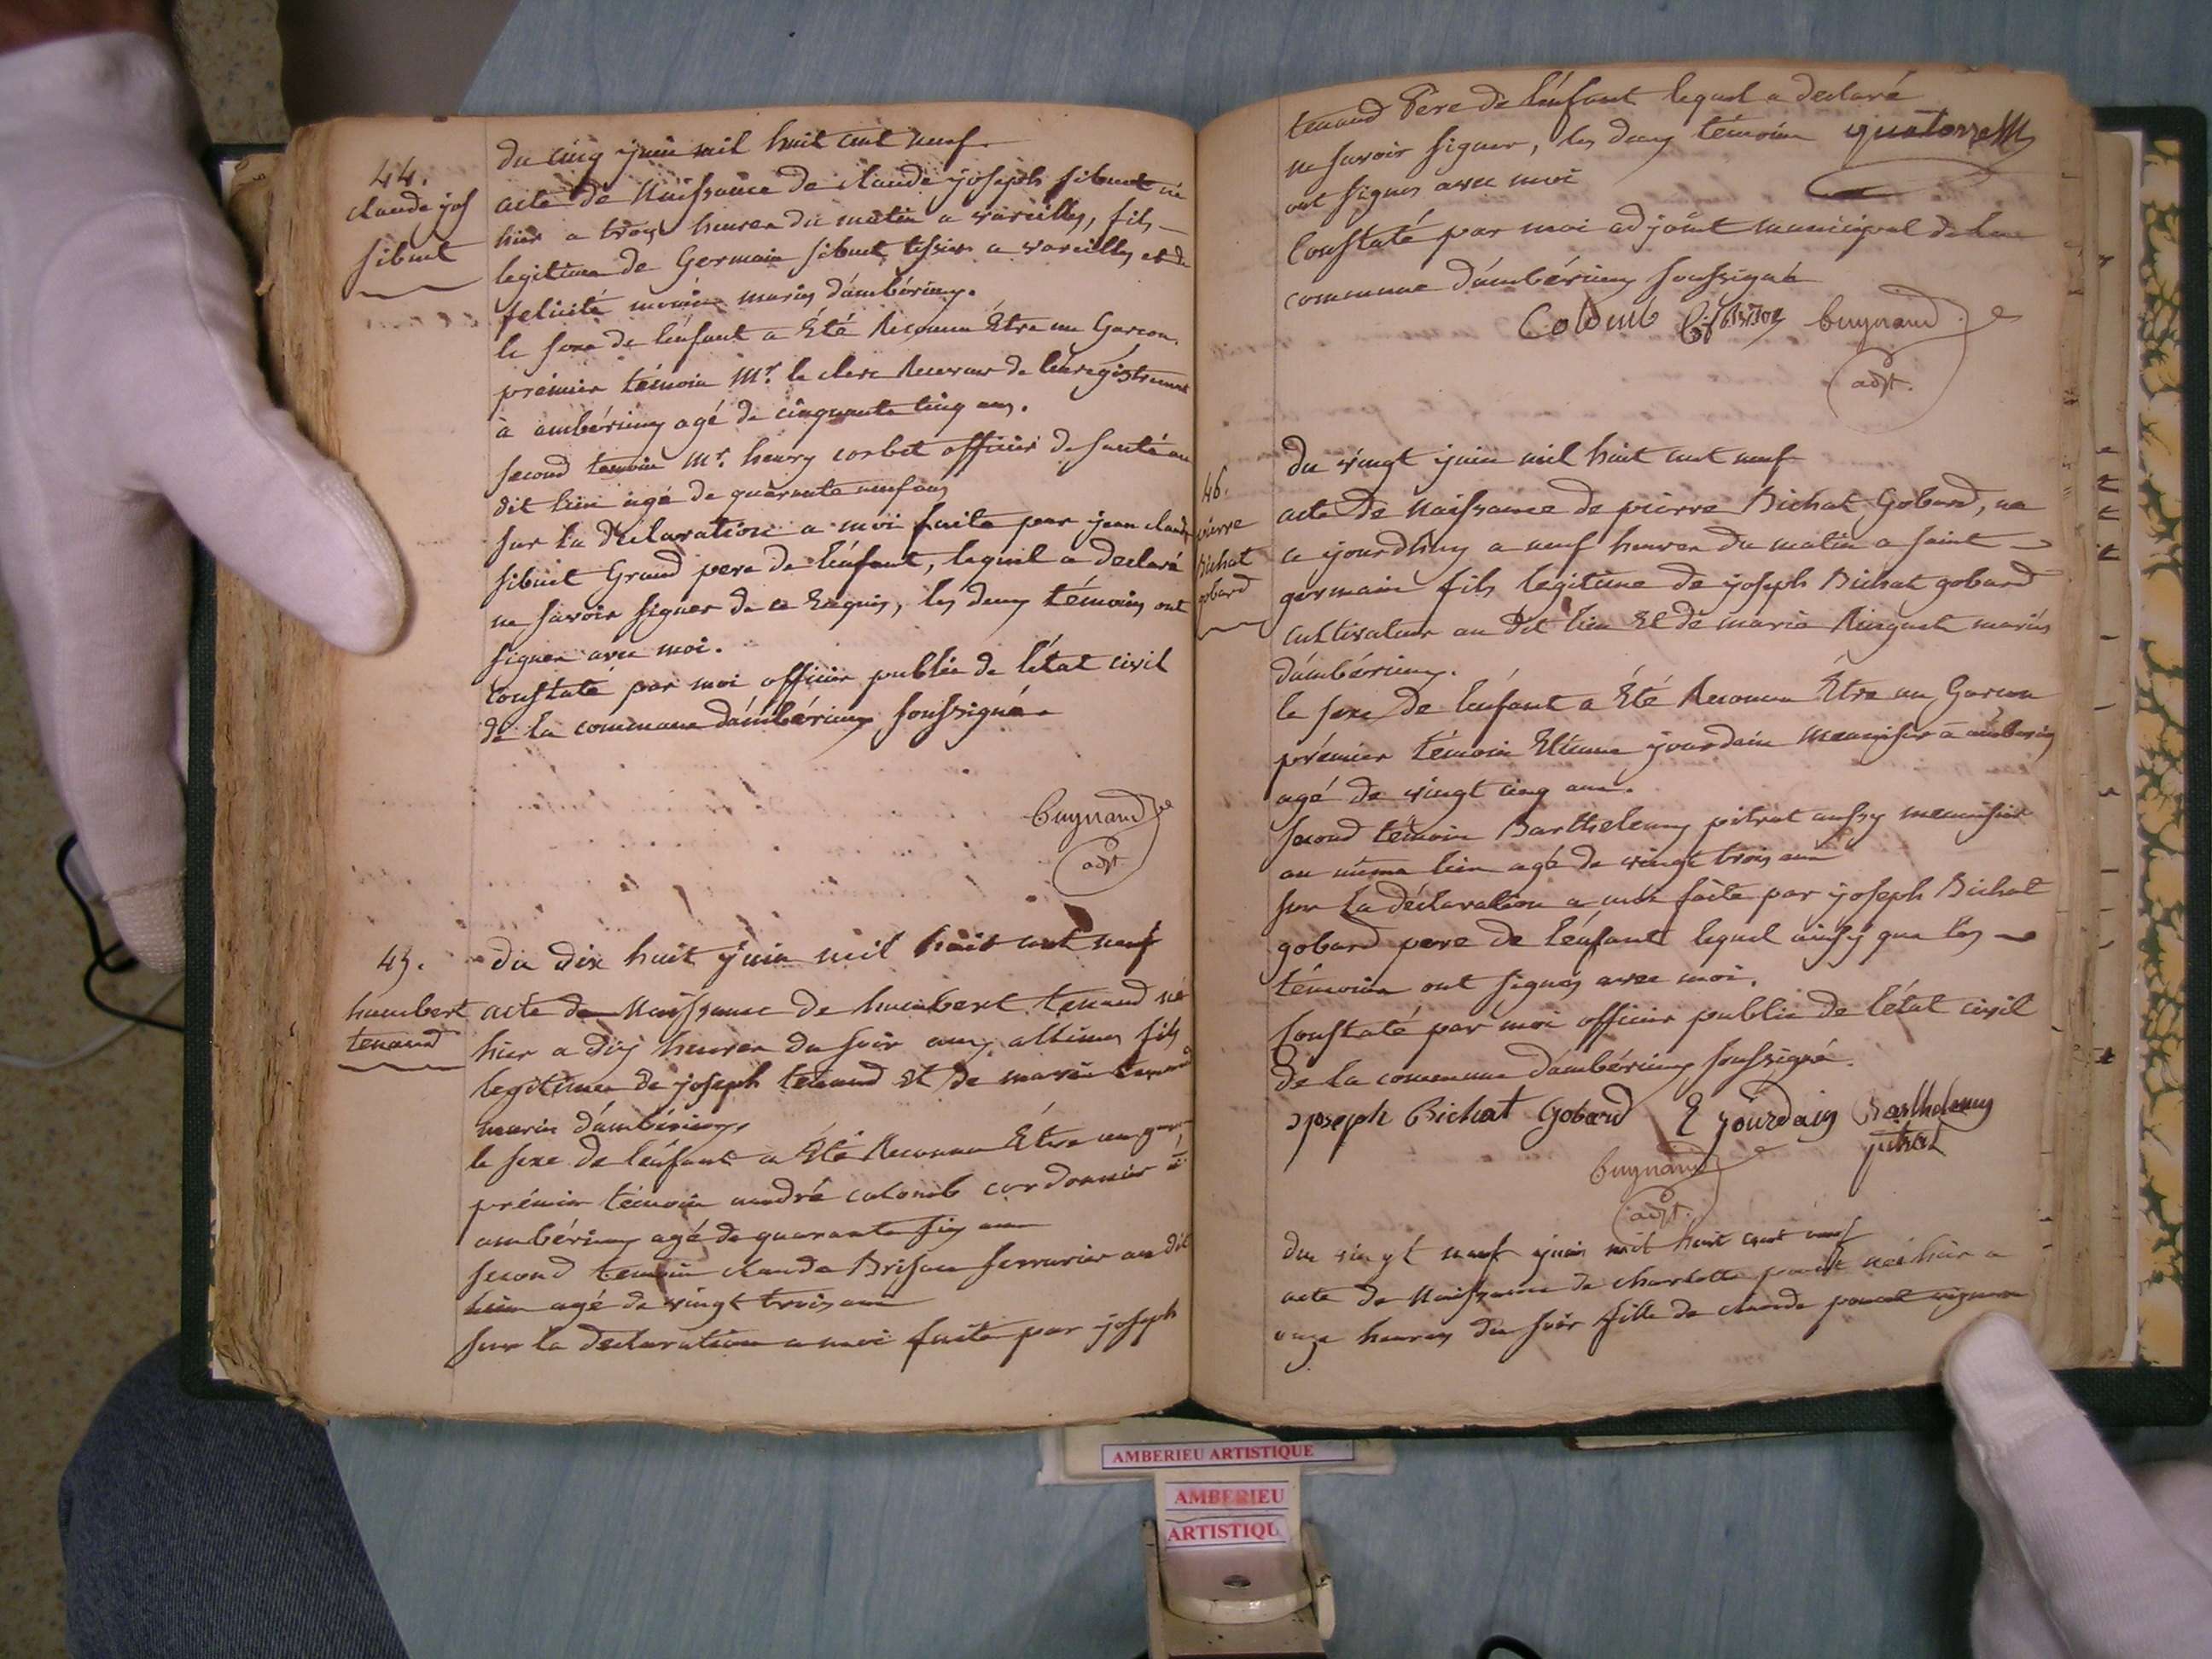 44.
claude jos
sibuet
du cinq juin mil huit cent neuf.
acte de Naissance de claude joseph sibuet né
hier a trois heures du matin a vareilles, fils
legitime de Germain sibuet tissier a vareilles et de
felicité monin mariés d'ambérieux.
le sexe de l'enfant a Eté Reconnu Etre un Garcon.
prémier témoin Mr. le clerc Receveur de l'enregistrement
à ambérieux agé de cinquante cinq ans.
second temoin Mr. henry corbet officier de santé au
dit lieu agé de quarante neuf ans
sur la déclaration a moi faite par jean claude
sibuet Grand pere de l'enfant, lequel a declaré
ne savoir signer de ce Enquis, les deux témoins ont
signer avec moi.
Constaté par moi officier public de l'état civil
de la commune d'ambérieux soussigné.
Buynand
adjt.
45.
humbert
tenand
du dix huit juin mil huit cent neuf
acte de Naissance de humbert tenand né
hier a dix heures du soir aux allimes fils
legitime de joseph tenand Et de marie tenand
mariés d'ambérieux
le sexe de l'enfant a Eté Reconnu Etre un
prémier témoin andré colomb cordonnier à
ambérieux agé de quarante six ans
second temoin claude Brison serrurier au dit
lieu agé de vingt trois ans
sur la declaration a moi faite par joseph
tenand Père de l'enfant lequel a declaré
ne savoir signer, les deux témoins
ont signés avec moi
Constaté par moi adjoint municipal de la
commune d'ambérieux soussigné
Colomb Buynand
adjt.
46.
pierre
Bichat
gobard
du vingt juin mil huit cent neuf
acte de Naissance de pierre Bichat Gobard, né
a jourdhuy a neuf heures du matin a saint
germain fils legitime de joseph Bichat gobard
cultivateur au dit lieu Et de marie Ringuet mariés
d'ambérieux.
le sexe de l'enfant a Eté Reconnu Etre un Garcon
prémier témoin Etienne jourdain menuisier à ambérieux
agé de vingt cinq ans.
second témoin Barthelemy pitrat aussy menuisier
au même lieu agé de vingt trois ans
sur La déclaration a moi faite par joseph Bichat
gobard pere de l'enfant lequel ainsy que les
témoins ont signés avec moi.
Constaté par moi officier public de l'état civil
de la commune d'ambérieux soussigné.
joseph Bichat Gobard E jourdain Barthelemy
pitrat
Buynand
adjt.
du vingt neuf juin mil huit cent neuf
acte de Naissance de charlotte née hier a
onze heures du soir fille de claude
AMBERIEU ARTISTIQUE
AMBERIEU
ARTISTIQU